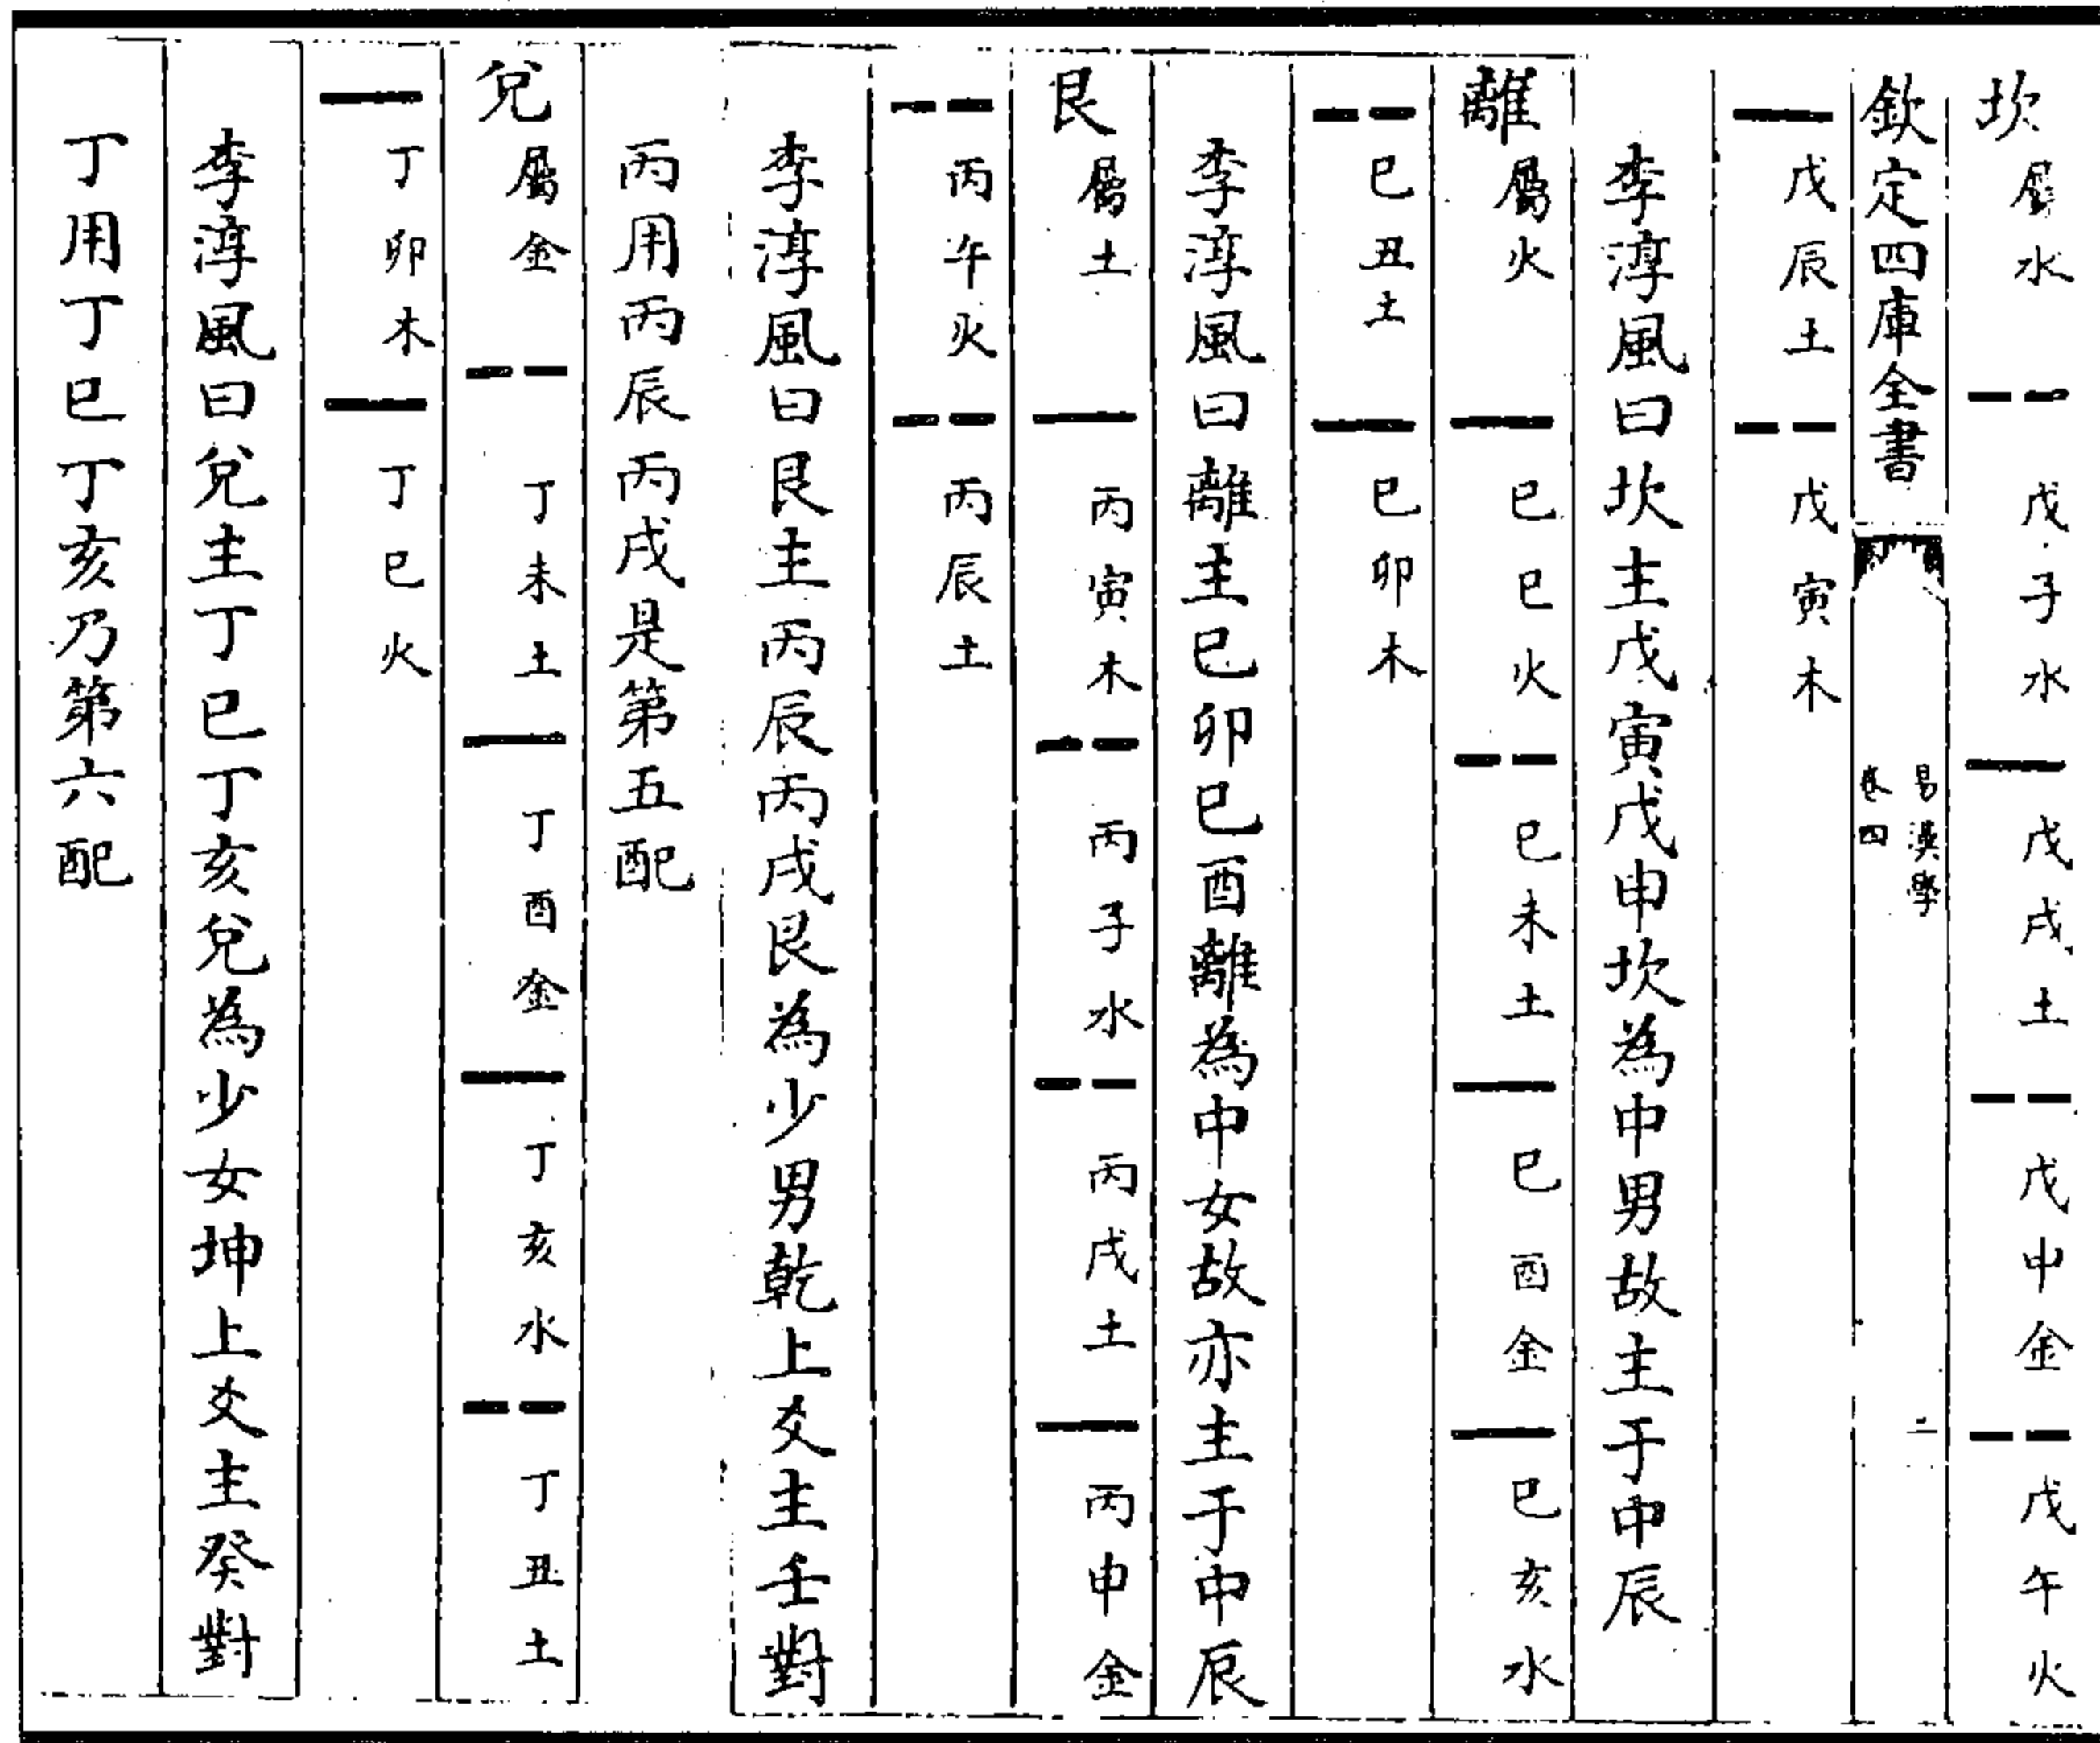 坎屬水 戊子水 戊戌土 戊申金 戊午火
欽定四庫全書 易漢學 卷四 二
戊辰土 戊寅木
李淳風曰坎主戊寅戊申坎為中男故主于中辰
離屬火 巳巳火 巳未土 巳酉金 巳亥水
巳丑土 巳卯木
李淳風曰離主巳卯巳酉離為中女故亦主于中辰
艮屬土 丙寅木 丙子水 丙戌土 丙申金
丙午火 丙辰土
李淳風曰艮主丙辰丙戌艮為少男乾上爻主壬對
丙用丙辰丙戌是第五配
兌屬金 丁未土 丁酉金 丁亥水 丁丑土
丁卯木 丁巳火
李淳風曰兌主丁巳丁亥兌為少女坤上爻主癸對
丁用丁巳丁亥乃第六配